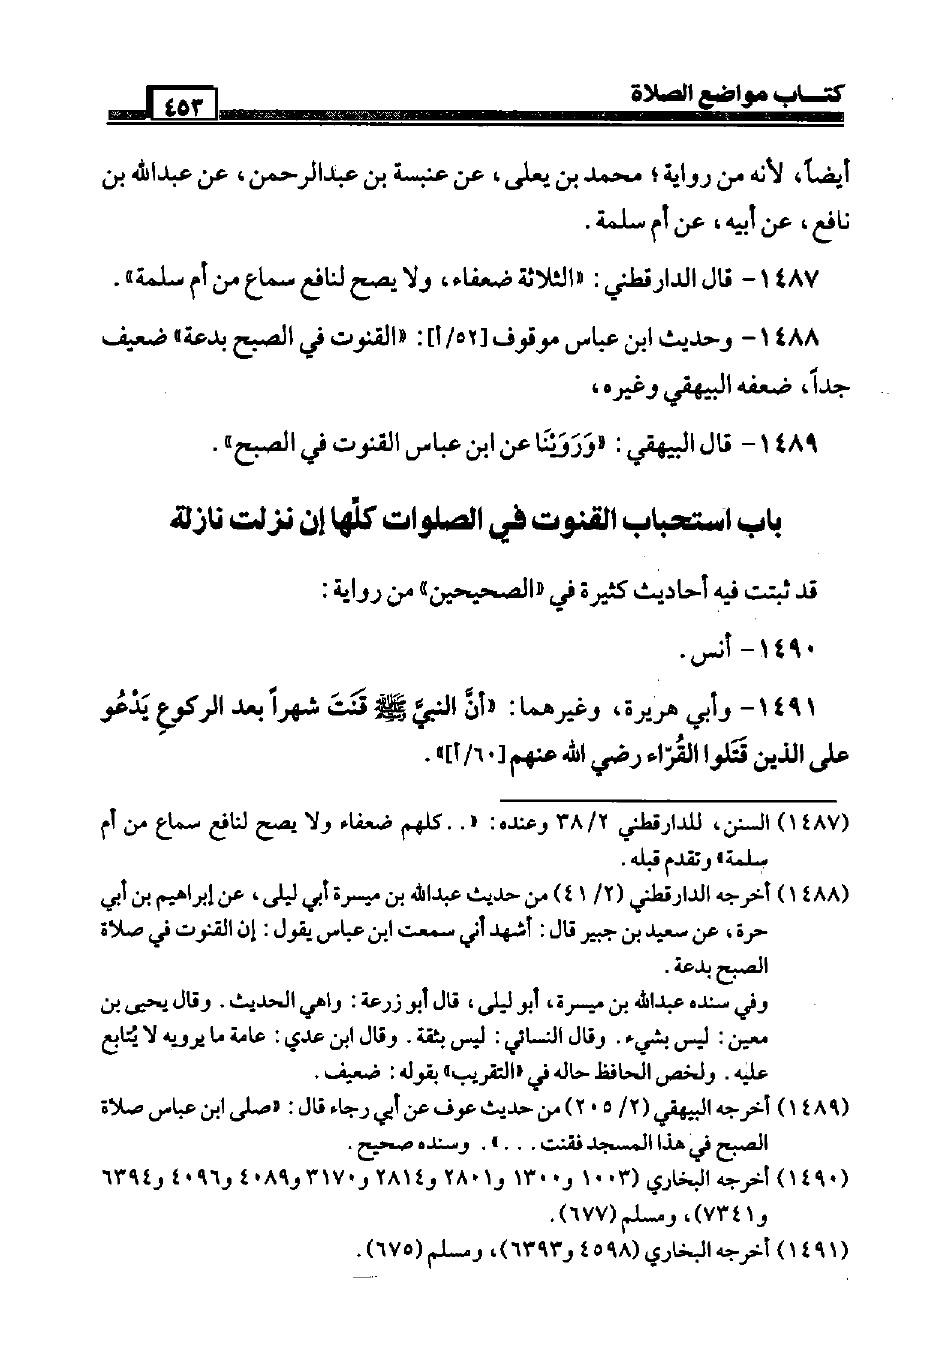 كتـــاب مواضع الصلاة
٤٥٣
أيضاً، لأنه من رواية؛ محمد بن يعلى، عن عنبسة بن عبدالرحمن، عن عبدالله بن
نافع، عن أبيه، عن أم سلمة.
١٤٨٧- قال الدارقطني: «الثلاثة ضعفاء، ولا يصح لنافع سماع من أم سلمة».
١٤٨٨- وحديث ابن عباس موقوف [٥٢/أ]: «القنوت في الصبح بدعة» ضعيف
جداً، ضعفه البيهقي وغيره،
١٤٨٩- قال البيهقي: «وَرَوَيْنَا عن ابن عباس القنوت في الصبح».
باب استحباب القنوت في الصلوات كلّها إن نزلت نازلة
قد ثبتت فيه أحاديث كثيرة في «الصحيحين» من رواية:
١٤٩٠- أنس.
١٤٩١- وأبي هريرة، وغيرهما: «أنَّ النبيَّ ﷺ قَنَتَ شهراً بعد الركوعِ يَدْعُو
على الذين قَتَلوا القُرّاء رضي الله عنهم [٦٠/أ]».
(١٤٨٧) السنن، للدارقطني ٣٨/٢ وعنده: «..كلهم ضعفاء ولا يصح لنافع سماع من أم
سلمة» وتقدم قبله.
(١٤٨٨) أخرجه الدارقطني (٤١/٢) من حديث عبدالله بن ميسرة أبي ليلى، عن إبراهيم بن أبي
حرة، عن سعيد بن جبير قال: أشهد أني سمعت ابن عباس يقول: إن القنوت في صلاة
الصبح بدعة.
وفي سنده عبدالله بن ميسرة، أبو ليلى، قال أبو زرعة: واهي الحديث. وقال يحيى بن
معين: ليس بشيء. وقال النسائي: ليس بثقة. وقال ابن عدي: عامة ما يرويه لا يُتابع
عليه. ولخص الحافظ حاله في «التقريب» بقوله: ضعيف.
(١٤٨٩) أخرجه البيهقي (٢٠٥/٢) من حديث عوف عن أبي رجاء قال: «صلى ابن عباس صلاة
الصبح في هذا المسجد فقنت ...». وسنده صحيح.
(١٤٩٠) أخرجه البخاري (١٠٠٣ و١٣٠٠ و٢٨٠١ و٢٨١٤ و٣١٧٠ و٤٠٨٩ و٤٠٩٦ و٦٣٩٤
و٧٣٤١)، ومسلم (٦٧٧).
(١٤٩١) أخرجه البخاري (٤٥٩٨ و٦٣٩٣)، ومسلم (٦٧٥).